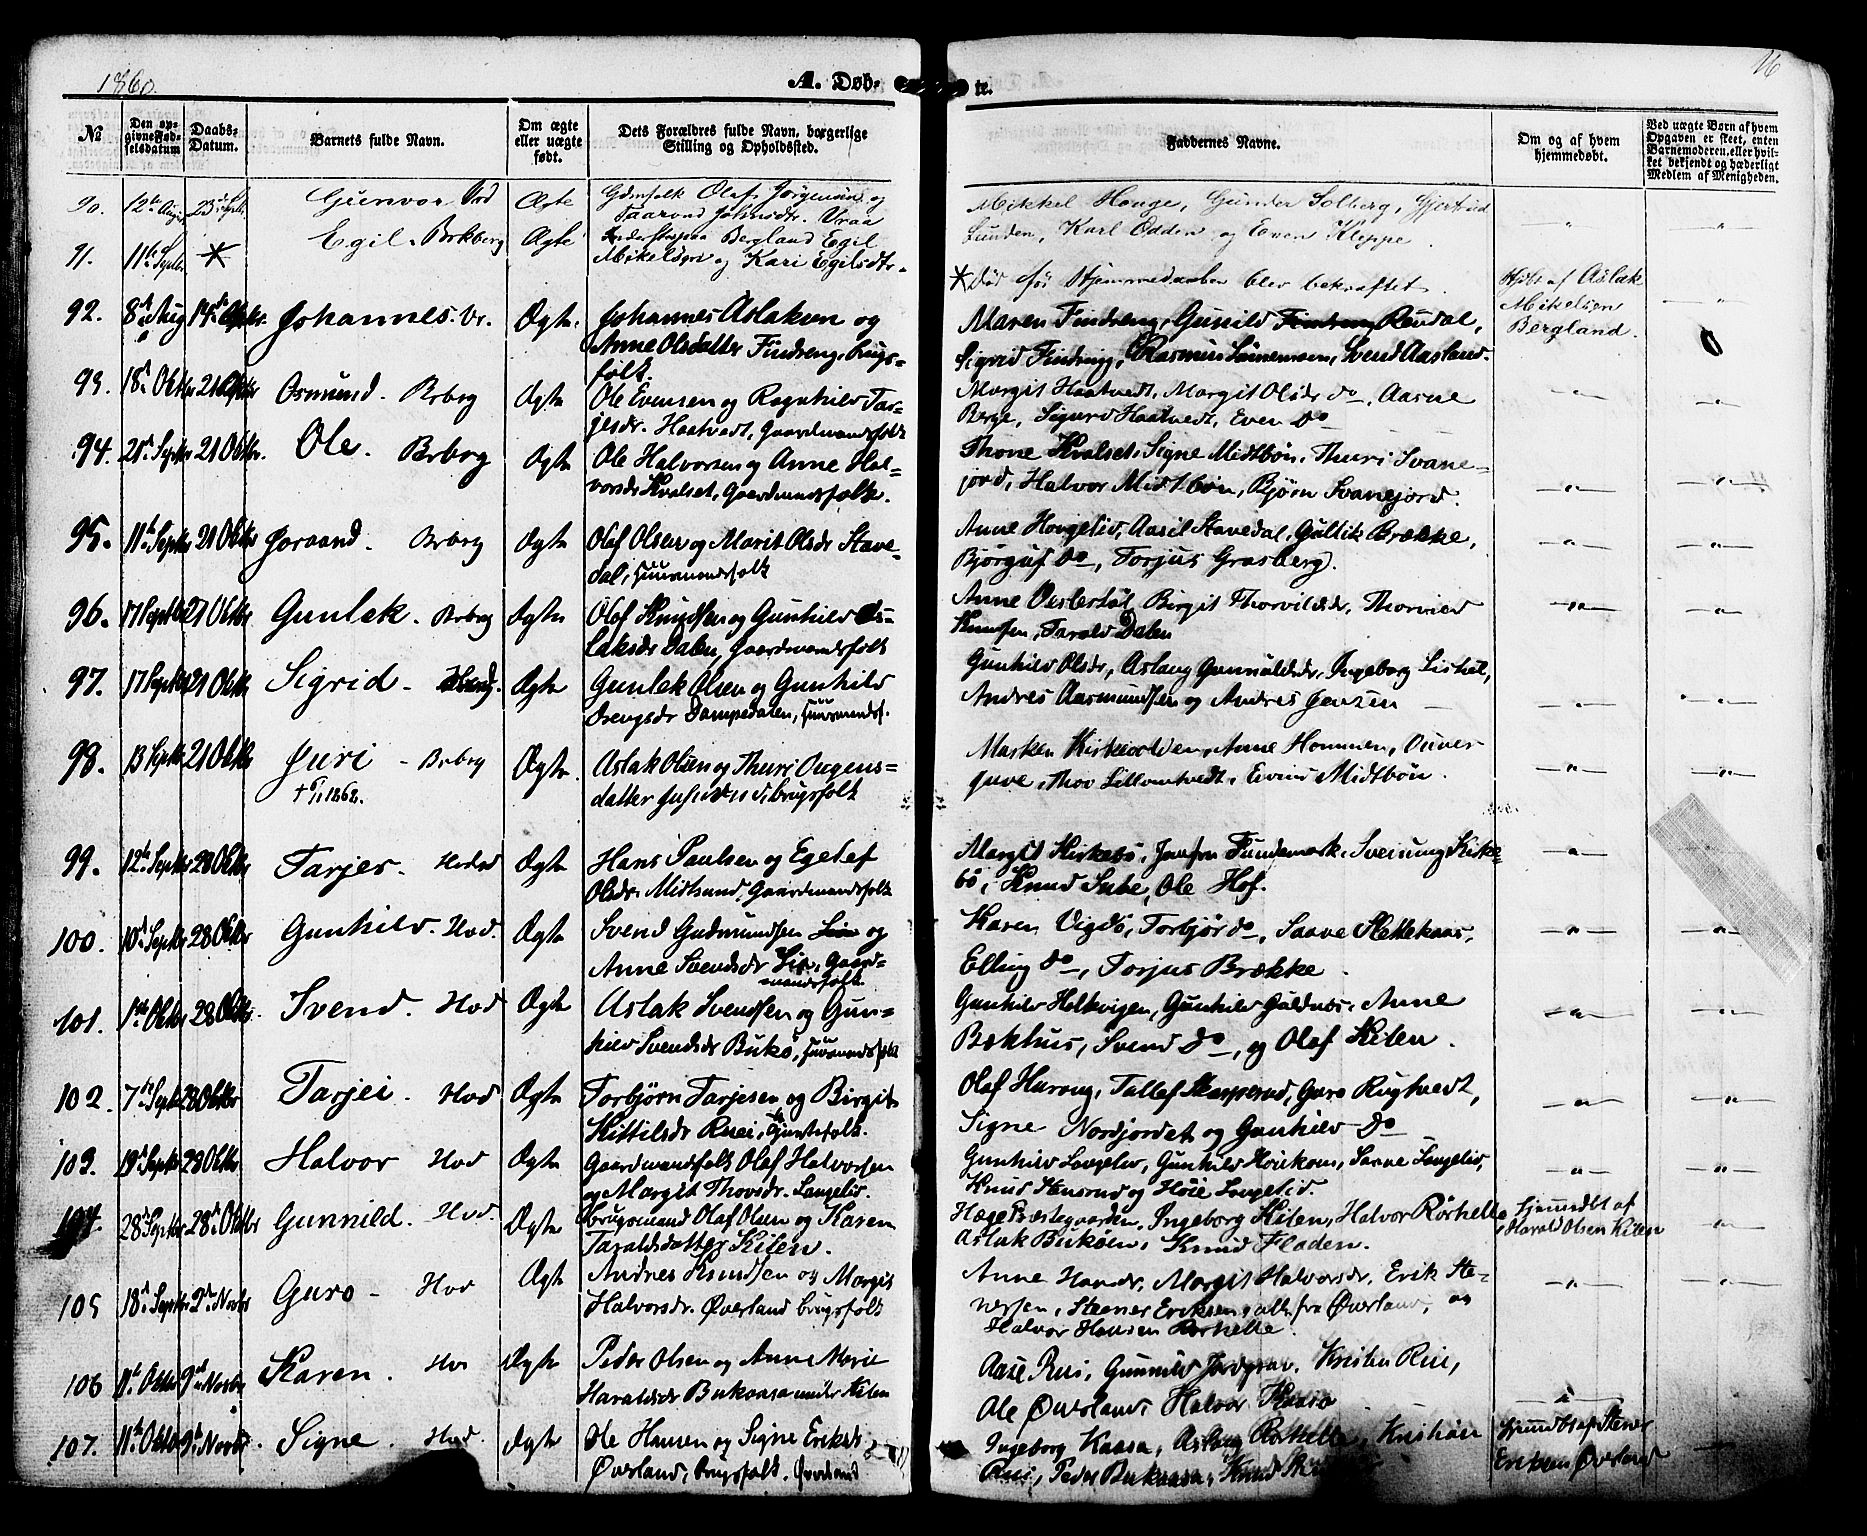 1860.
A. Døb-
te.
16
№
Den op-
givne Fød-
selsdatum
Daabs-
Datum.
Barnets fulde Navn.
Om ægte
eller uægte
født.
Dets Forældres fulde Navn, borgerlige
Stilling og Opholdssted.
Faddernes Navne.
Om og af hvem
hjemmedøbt.
Ved uægte Børn af hvem
Opgaven er skeet, enten
Barnemoderen, eller hvil-
ket bekjendt og hæderligt
Medlem af Menigheden.
90. Gunvor Ægte Olaf Jørgensen og
Vraa
Mikkel Hauge, Gunder Solberg, Gjertrud
Lunden, Karl Odden og Even Kleppe.
91. 11te Septbr * Egil Ægte Bergland Egil
Mikelsen og Kari Egilsdtr.
* død før Hjemmedaaben blev bekræftet.
Hjdt af Aslak
Mikelsen
Bergland.
92. 8de Aug 14de Oktbr. Johannes. Ægte. Johannes Aslaksen og
Anne Olsdatter Findreng, brugs-
folk.
Maren Findreng, Gunild Reudal,
Sigrid Findreng, Rasmus, Svend Aasland.
93. 18de Oktbr 21 Oktbr Osmund. Ægte Ole Evensen og Ragnhild Tar-
jesdr. Haatvedt, Gaardmandsfolk
Margit Haatvedt, Margit Olsdr do, Aasne
Berge, Sigurd Haatvedt, Even do
94. 21 Oktbr. Ole. Ægte Ole Halvorsen og Anne Hal-
vorsdr Kvalset, Gaardmandsfolk.
Thone Kvalset, Signe Midtbøn, Thuri Svane-
jord, Halvor Midtbøn, Bjørn Svanejord.
95. 11te Septbr 21 Oktbr Joraand. Ægte Olaf Olsen og Marit Olsdr Stave-
dal, Huusmandsfolk
Anne Hougelid, Aasil Stavedal, Gullik Brække,
Bjørguf do, Torjus Grasberg.
96. 17 Septbr 21 Oktbr Gunlek. Ægte Olaf Knudsen og Gunhild As-
laksdr Dalen, Gaardmandsfolk
Anne Vesterdal, Birgit Thorvildsdr, Thorvild
Knudsen, Tarald Dalen
97. 17 Septbr 21 Oktbr Sigrid - Ægte Gunlek Olsen og Gunhild
Drengsdr Dampedalen, Huusmandsf.
Gunhild Olsdr, Aslaug Gunnulsdr, Ingeborg Lisdal,
Andres Aasmundsen og Andres Jensen
98. 13 Septbr 21 Oktbr Juri - Ægte. Aslak Olsen og Thuri Augens-
datter, brugsfolk
† 6/11 1868.
Anne Hommen,
Thov Lillomtvedt, Eivind Midtbøn.
99. 12te Septbr 28 Oktbr Tarjer. Ægte Hans Paulsen og Egelef
Olsdr. Midtsund, Gaardmandsfolk
Margit Kirkebø, Sveinung Kirke-
bø, Knud Sube, Ole Hof.
100. 10de Septbr 28 Oktbr Gunhild. Hvd. Ægte Svend Gudmundsen og
Anne Svendsdr Lie, Gaard-
mandsfolk
Karen Vigdø, Torbjør do, Saave Slettekaas,
Elling do, Torjus Brække.
101. 1ste Oktbr 28 Oktbr. Svend. Hvd Ægte Aslak Svendsen og Gun-
hild Svendsdr Bukø, Huusmandsfolk
Gunhild Holtvigen, Gunhild Guldnæs, Anne
Bækhus, Svend do, og Olaf Kilen.
102. 7de Septbr 28 Oktbr Tarjei. Hvd Ægte Torbjørn Tarjesen og Birgit
Kittilsdr Ruei, Tjenstefolk.
Olaf Haraug, Tallef Kasperud, Guro Rugtvedt,
Signe Nordjordet og Gunhild do
103. 19de Septbr 28 Oktbr Halvor Hvd Ægte Gaardmandsfolk Olaf Halvorsen
og Margit Thovsdr. Langelid.
Gunhild Langelid, Gunhild Høikom, Saave Langelid,
Knud Stensrud og Høie Langelid.
104. 28de Septbr 28de Oktbr Gunnild. Hvd. Ægte Brugsmand Olaf Olsen og Karen
Taraldsdatter Kilen.
Hæge Præstegaarden, Ingeborg Kilen, Halvor Rørhelle
Aslak Bukøen, Knud Fladen.
Hjemmdbt af
Harald Olsen Kilen
105 18de Septbr 2den Novbr Guro - Hvd Ægte Andres Knudsen og Margit
Halvorsdr. Øverland brugsfolk
Anne Hansdr, Margit Halvorsdr, Erik Ste-
nersen, Steener Eriksen, alle fra Øverland, og
Halvor Hansen Rørhelle.
106 11te Oktbr 9de Novbr Karen. Hvd Ægte Peder Olsen og Anne Marie
Haraldsdr Bukaasa under Kilen
Aase Rui, Gunnild Jordgrav, Kristen Rui,
Ole Øverland, Halvor Kaasa
107. 11te Oktbr 9de Novbr. Signe. Hvd. Ægte Ole Hansen og Signe Eriksdr
Øverland, Brugsfolk,
Ingeborg Kaasa, Aslaug Rørhelle, Kristian
Rui, Peder Bukaasa, Knud
Hjemmdbt af Stener
Eriksen Øverland